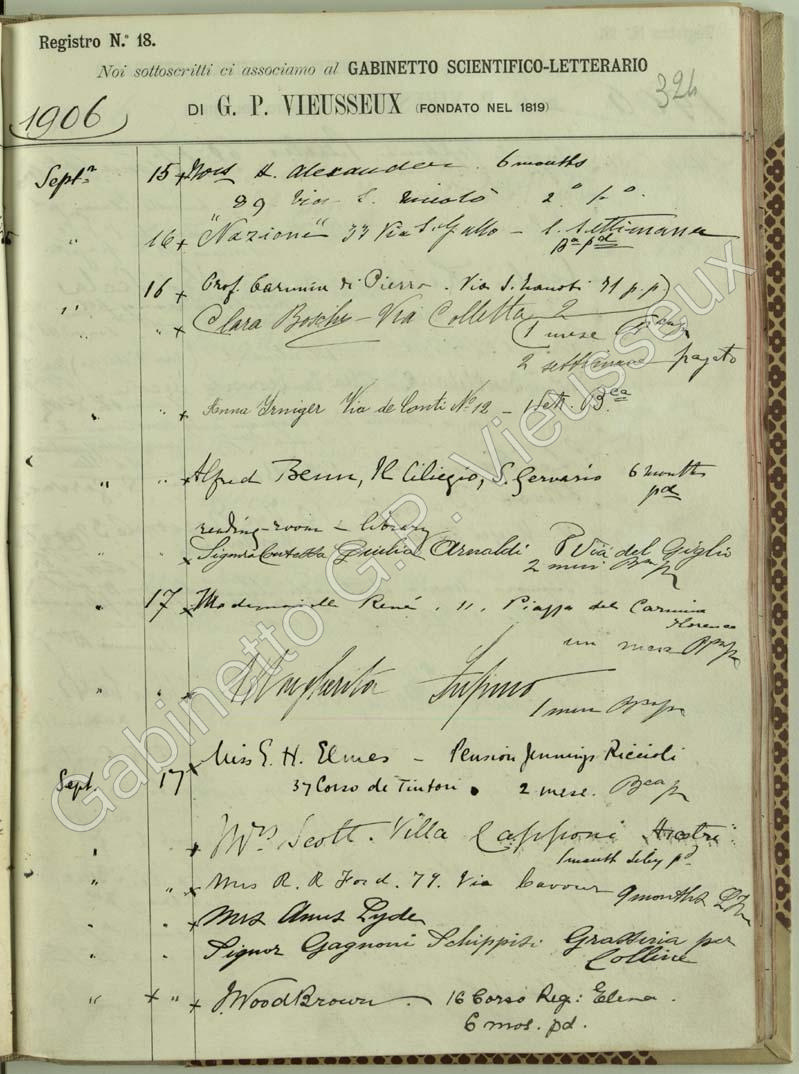 Registro N.º 18.
324
Noi sottoscritti ci associamo al GABINETTO SCIENTIFICO-LETTERARIO
DI G. P. VIEUSSEUX (FONDATO NEL 1819)
1906
Septr 15 x H. Alexander 6 months
89 Via S. Nicolò 2º
" 16 x "Nazione" 37 Via S. Gallo - 1. Settimana
pd
16 x Prof. Carmine di Pierro. Via S. Zanobi 31 p.p.
" " x Clara Boschi - Via Colletta 2
1 mese
2 settimane pagato
" " x Anna Irniger Via de Conti No 12 - 1 Sett. Bca
" " x Alfred Benn, Il Ciliegio, S. Gervasio 6 months
pd
reading-room - library
" " x Signora Contessa Giulia Arnaldi 8 Via del Giglio
2 mesi
" 17 x Mademoiselle René. 11, Piazza del Carmine
Florence
un mese
" " x Margherita
1 mese
Sept. 17 x Miss E. H. Elmes - Pension Jennings Riccioli
37 Corso de Tintori. 2 mese. Bca
" x Mrs Scott. Villa Capponi Arcetri
1 month pd.
" " x Mrs R. R Ford. 79. Via Cavour 9 months
" " x Mrs Lyde
" " Signor Gagnoni
Colline
" x " x J. Wood Brown. 16 Corso Reg: Elena.
6 mos. pd.
Gabinetto G.P. Vieusseux